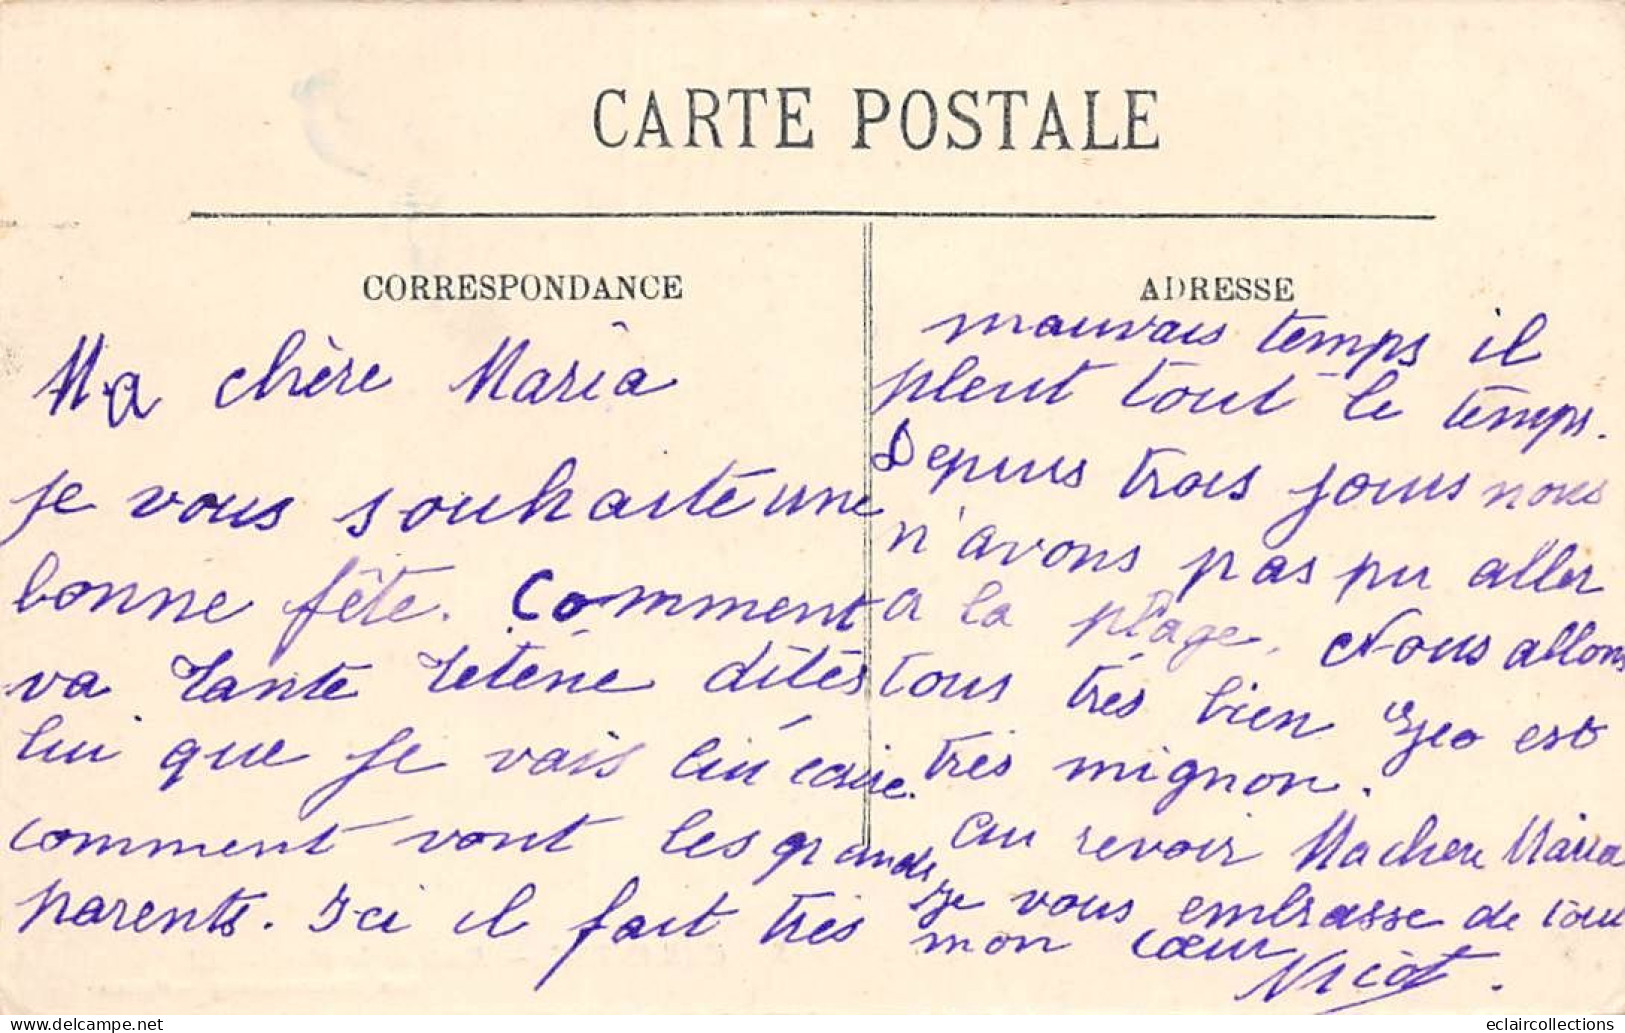 CARTE POSTALE
CORRESPONDANCE
Ma chère Maria
je vous souhaite une
bonne fête. Comment
va Tante dites
lui que je vais lui écrire.
comment vont les grands
parents. Ici il fait très
ADRESSE
mauvais temps il
pleut tout le temps.
Depuis trois jours nous
n'avons pas pu aller
a la plage. Nous allons
tous très bien Geo est
très mignon.
au revoir Ma chere Maria
Je vous embrasse de tout
mon cœur
eclaircollections